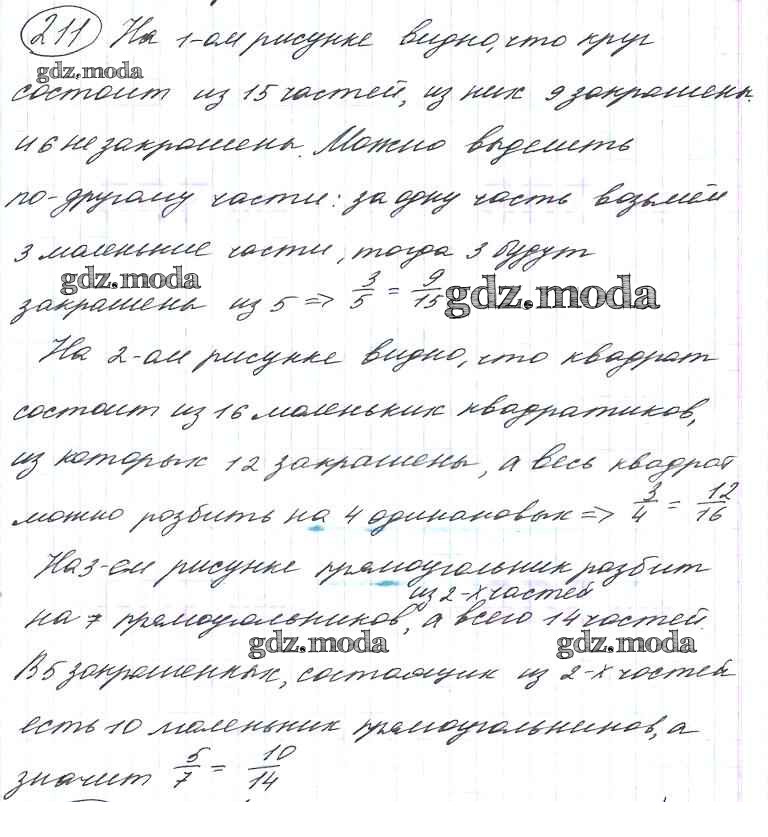 211 На 1-ом рисунке видно, что круг
gdz.moda
состоит из 15 частей, из них 9 закрашены
и 6 не закрашены. Можно выделить
по-другому части: за одну часть возьмём
3 маленькие части, тогда 3 будут
gdz.moda
закрашены из 5 => 3/5 = 9/15 gdz.moda
На 2-ом рисунке видно, что квадрат
состоит из 16 маленьких квадратиков,
из которых 12 закрашены, а весь квадрат
можно разбить на 4 одинаковых => 3/4 = 12/16
На 3-ем рисунке прямоугольник разбит
из 2-х частей
на 7 прямоугольников, а всего 14 частей.
gdz.moda gdz.moda
В 5 закрашенных, состоящих из 2-х частей
есть 10 маленьких прямоугольников, а
значит 5/7 = 10/14